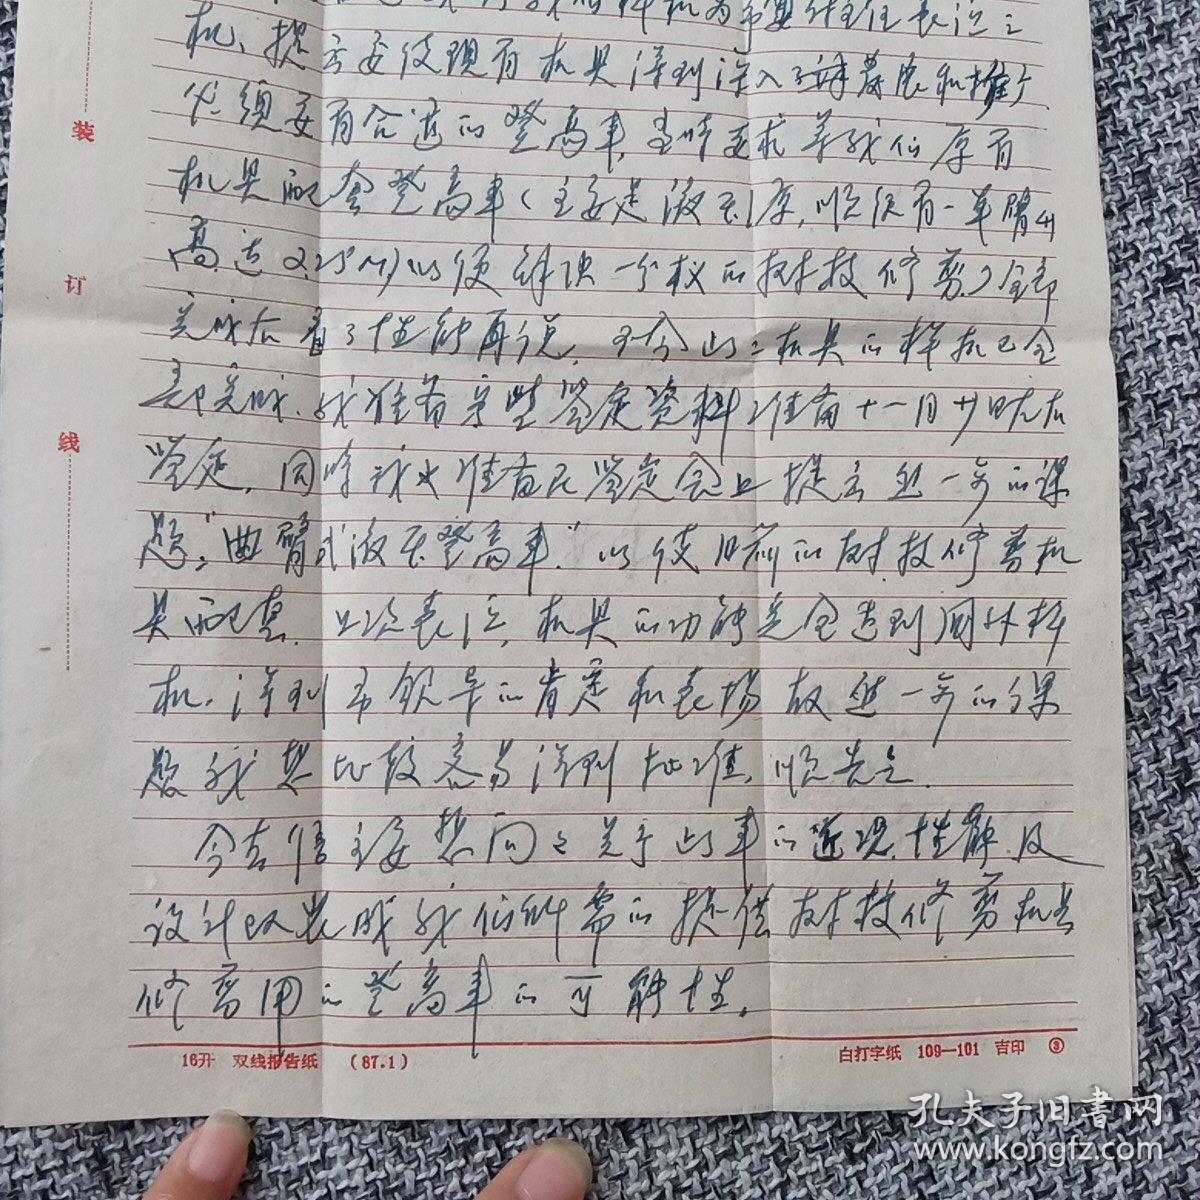 机，提高要使现有机具得到深入了解发展和推广
必须要有合适的登高车，当时要求等我们原有
机具配套登高车（主要是液压源，顺便有一单臂
高达2.25M）以便解决一个权的树枝修剪）全部
完成后看了性能再说，至今此三机具的样机已全
部完成，我准备完整鉴定资料准备十一月廿日左右
鉴定，同时我也准备在鉴定会上提出进一步的课
题，“曲臂式液压登高车”以使目前的树枝修剪机
具配套。上次表演，机具的功能完全达到国外样
机，得到市领导的肯定和表扬故进一步的课
题我想比较容易得到批准，顺告之
今去信主要想问之关于此车的近况，性能，及
设计改装成我们所需的提供树枝修剪机具
修剪用的登高车的可能性。
装
订
线
16开 双线报告纸 (87.1)
白打字纸 109—101 吉印 ③
孔夫子旧書网
www.kongfz.com